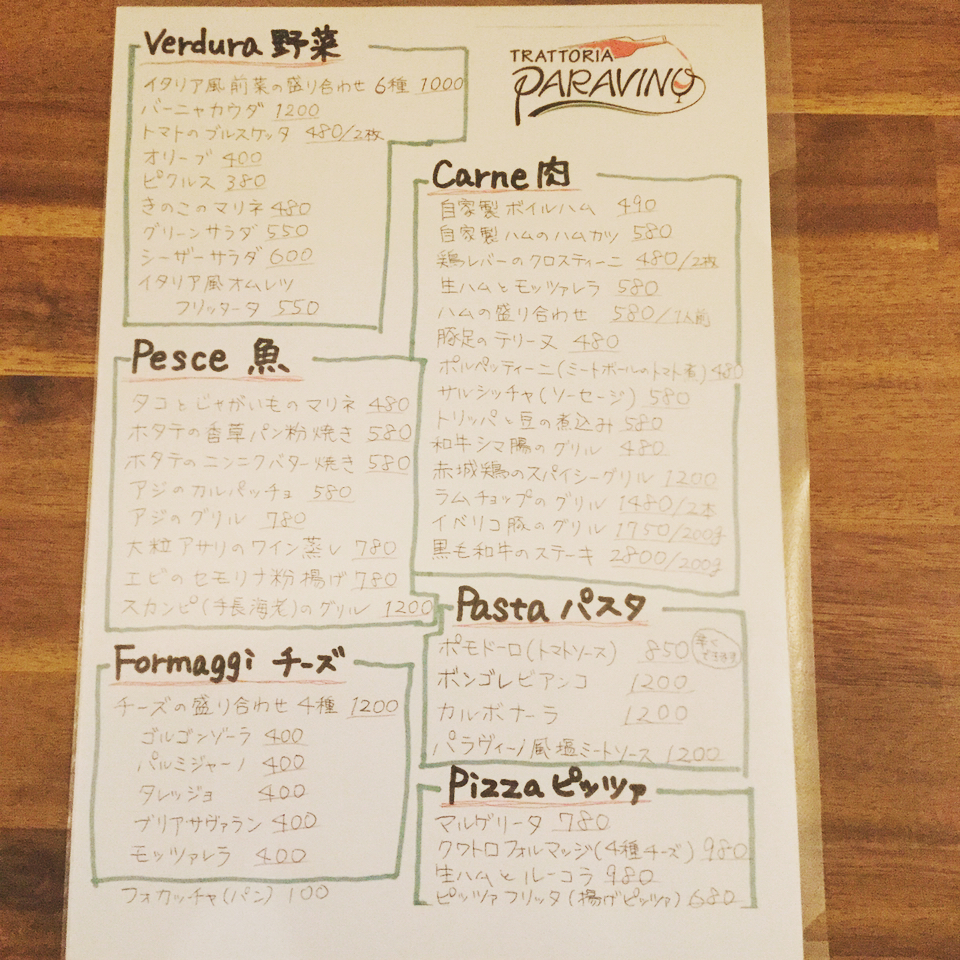 TRATTORIA
PARAVINO
Verdura 野菜
イタリア風前菜の盛り合わせ 6種 1000
バーニャカウダ 1200
トマトのブルスケッタ 480/2枚
オリーブ 400
ピクルス 380
きのこのマリネ 480
グリーンサラダ 550
シーザーサラダ 600
イタリア風オムレツ
フリッタータ 550
Pesce 魚
タコとじゃがいものマリネ 480
ホタテの香草パン粉焼き 580
ホタテのニンニクバター焼き 580
アジのカルパッチョ 580
アジのグリル 780
大粒アサリのワイン蒸し 780
エビのセモリナ粉揚げ 780
スカンピ(手長海老)のグリル 1200
Formaggi チーズ
チーズの盛り合わせ 4種 1200
ゴルゴンゾーラ 400
パルミジャーノ 400
タレッジョ 400
ブリアサヴァラン 400
モッツァレラ 400
フォカッチャ(パン) 100
Carne 肉
自家製ボイルハム 490
自家製ハムのハムカツ 580
鶏レバーのクロスティーニ 480/2枚
生ハムとモッツァレラ 580
ハムの盛り合わせ 580/1人前
豚足のテリーヌ 480
ポルペッティーニ(ミートボールのトマト煮) 480
サルシッチャ(ソーセージ) 580
トリッパと豆の煮込み 580
和牛シマ腸のグリル 480
赤城鶏のスパイシーグリル 1200
ラムチョップのグリル 1480/2本
イベリコ豚のグリル 1750/200g
黒毛和牛のステーキ 2800/200g
Pasta パスタ
ポモドーロ(トマトソース) 850
ボンゴレビアンコ 1200
カルボナーラ 1200
パラヴィーノ風塩ミートソース 1200
Pizza ピッツァ
マルゲリータ 780
クワトロフォルマッジ(4種チーズ) 980
生ハムとルーコラ 980
ピッツァフリッタ(揚げピッツァ) 680